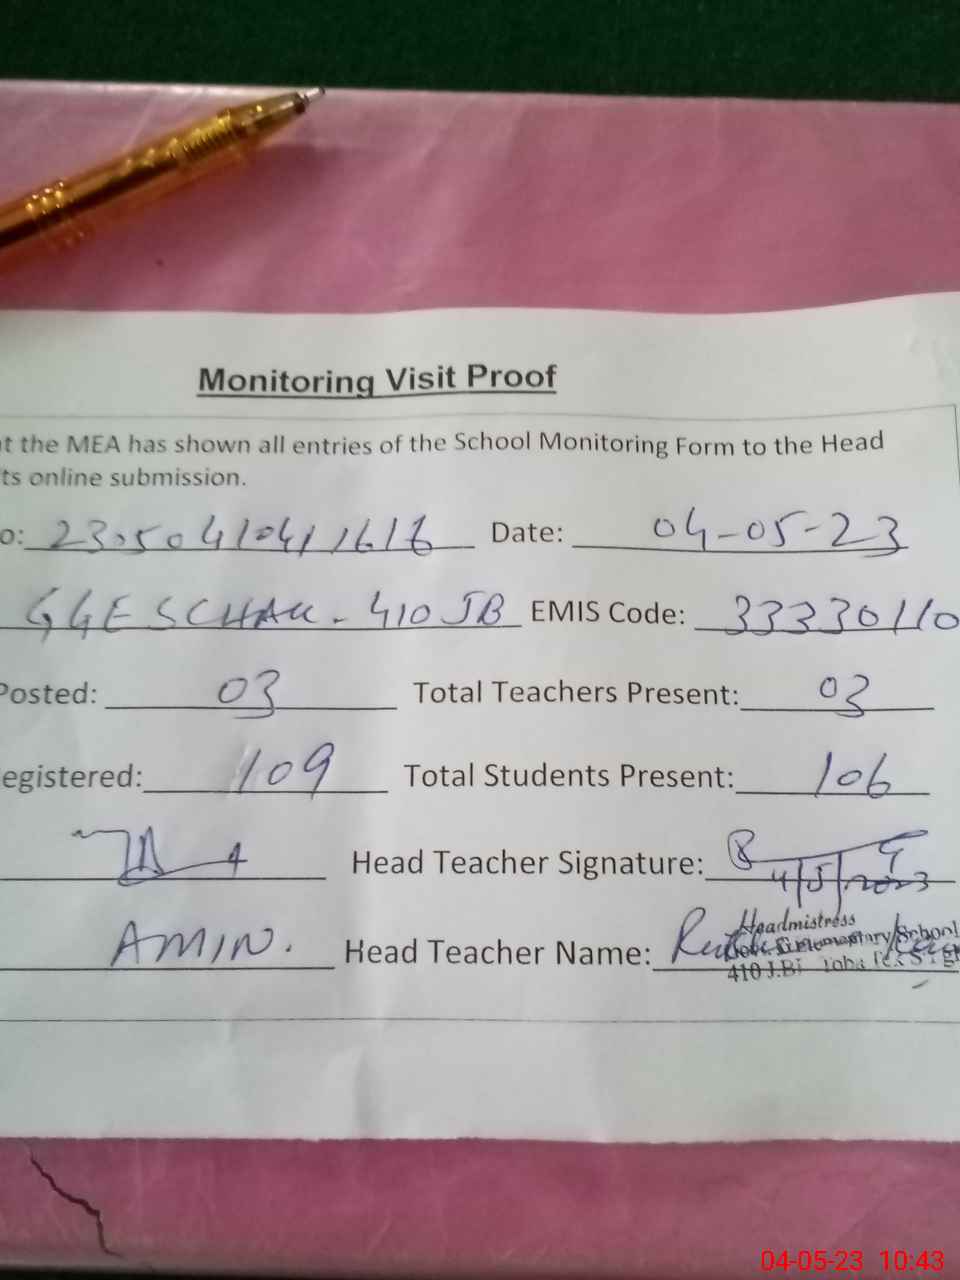 Monitoring Visit Proof
at the MEA has shown all entries of the School Monitoring Form to the Head
ts online submission.
o: Date: 04-05-23
GGES CHAK - 410 JB EMIS Code: 33330110
Posted: 03 Total Teachers Present: 03
egistered: 109 Total Students Present: 106
Head Teacher Signature:
4/5/2023
AMIN. Head Teacher Name:
Headmistress
Elementary School
410 J.B
04-05-23 10:43